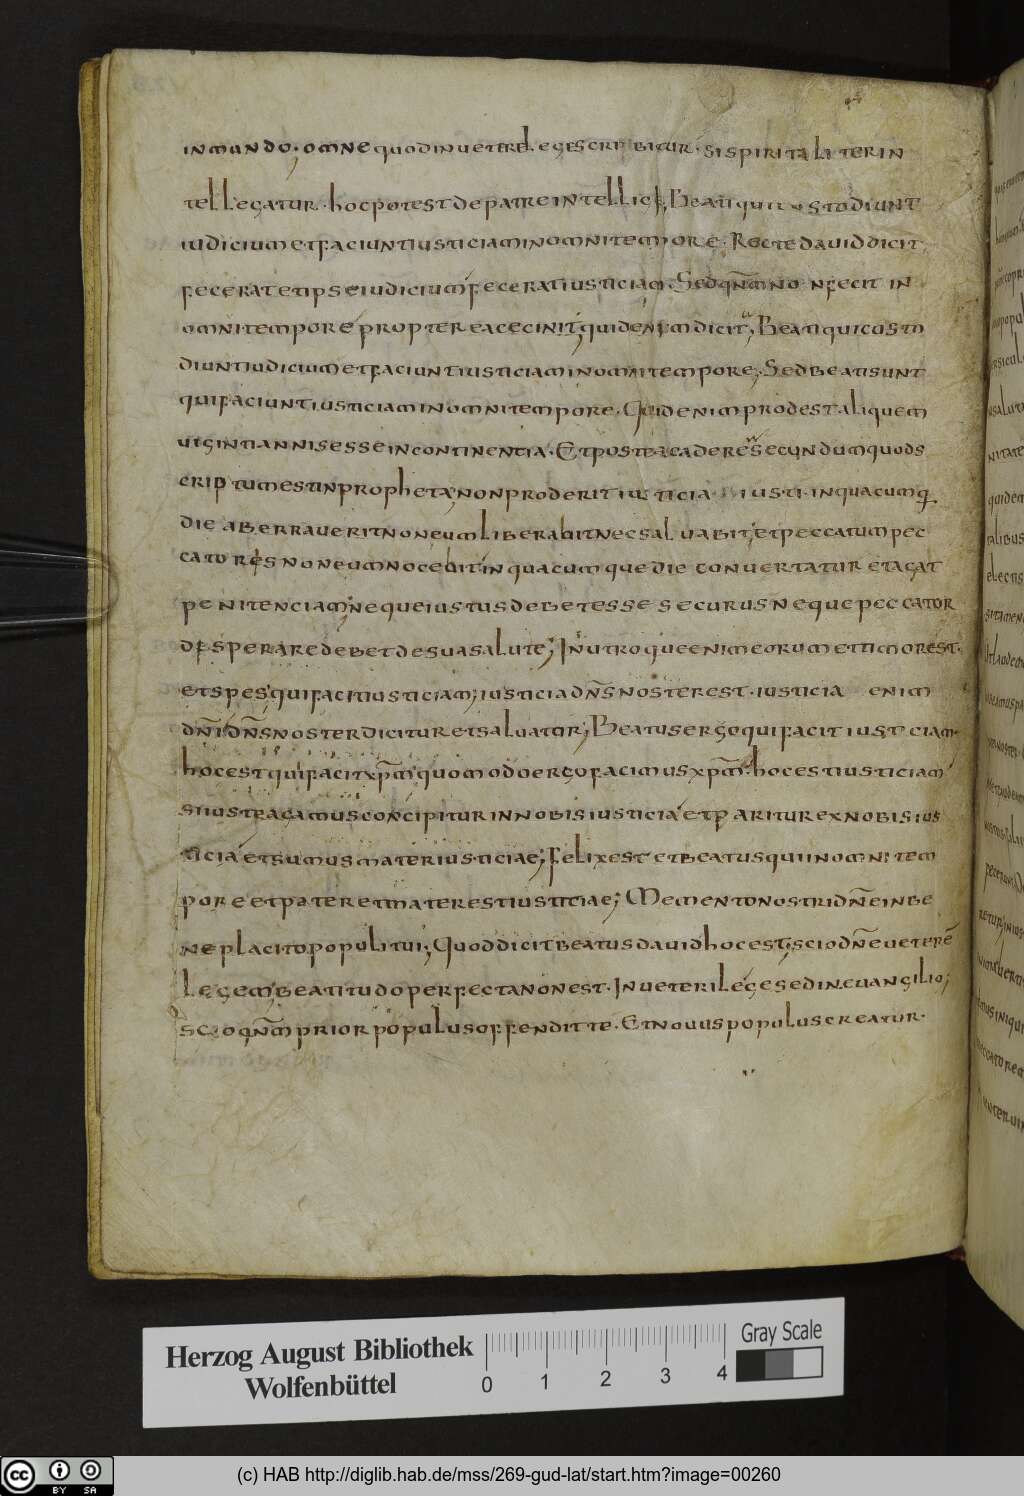 in mundo. omne quod in uetere lege scribitur. si spiritaliter in
tellegatur. hoc potest de patre intellici; Beati qui custodiunt
iudicium et faciunt iusticiam in omni tempore. Recte dauid dicit
fecerat et ipse iudicium fecerat iusticiam. Sed qnm non fecit in
omni tempore propterea cecinit quidem dicit; Beati qui custo
diunt iudicium et faciunt iusticiam in omni tempore; Sed beati sunt
qui faciunt iusticiam in omni tempore. Quid enim prodest aliquem
uiginti annis esse in continentia. Et postea cadere secundum quod s
criptum est in propheta non proderit iusticia iusti. in quacumq
die aberrauerit non eum liberabit nec saluabit, et peccatum pec
catores non eum nocebit in quacumque die conuertatur et agat
penitenciam, neque iustus debet esse securus neque peccator
desperare debet de sua salute; In utroque enim eorum et timor est.
et spes, qui facit iusticiam; iusticia dns noster est. iusticia enim
dni dns noster dicitur et saluator; Beatus ergo qui facit iusticiam.
hoc est qui facit xpm quomodo ergo facimus xpm. hoc est iusticiam
si iustra agamus concipitur in nobis iusticia et pariturex nobis ius
ticia et sumus mater iusticiae; felix est et beatus qui in omni tem
pore et pater et mater est iusticiae; Memento nostri dne in be
ne placito populi tui; Quod dicit beatus dauid hoc est, scio dne uetere
legem beatitudo perfecta non est. In ueteri lege sed in euangilio;
scio qnm prior populus offendit te. Et nouus populus creatur.
Herzog August Bibliothek
Wolfenbüttel
0 1 2 3 4
Gray Scale
cc BY SA
(c) HAB http://diglib.hab.de/mss/269-gud-lat/start.htm?image=00260